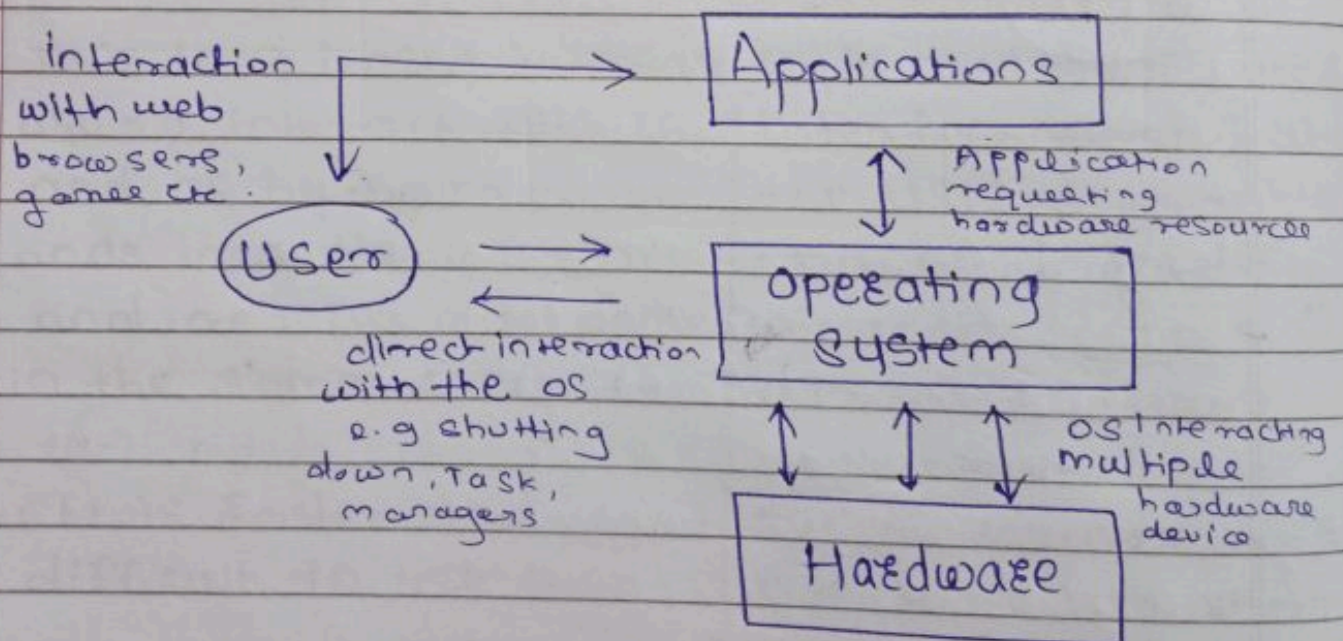 interaction
with web
browsers,
games etc.
Applications
Application
requesting
hardware resources
User
Operating
System
direct interaction
with the OS
e.g shutting
down, Task,
managers
OS Interacting
multiple
hardware
device
Hardware